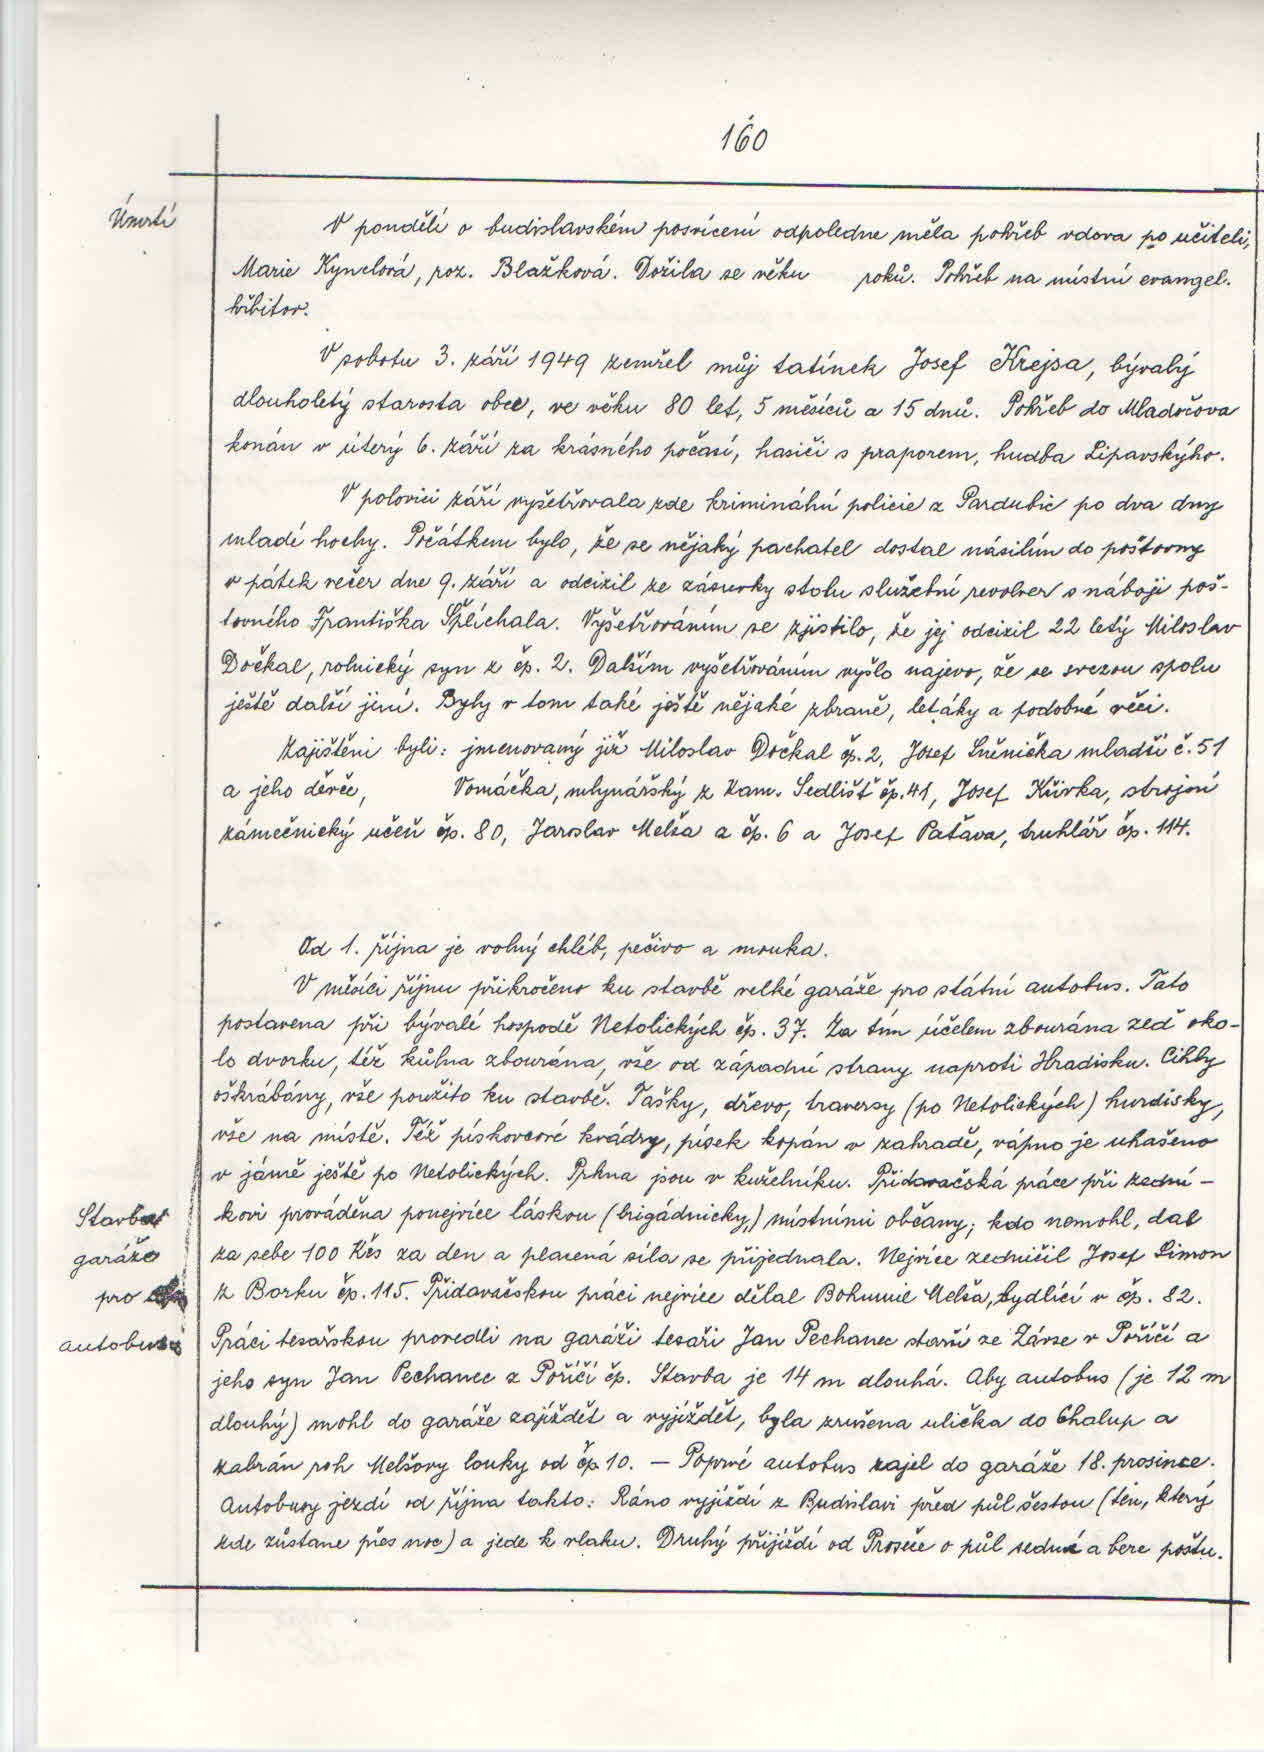 160
Úmrtí
V pondělí o budislavském posvícení odpoledne měla pohřeb vdova po učiteli,
Marie Kynclová, roz. Blažková. Dožila se věku roků. Pohřeb na místní evangel.
hřbitov.
V sobotu 3. září 1949 zemřel můj tatínek Josef Krejsa, bývalý
dlouholetý starosta obce, ve věku 80 let, 5 měsíců a 15 dnů. Pohřeb do Mladočova
konán v úterý 6. září za krásného počasí, hasiči s praporem, hudba Lipavskýho.
V polovici září vyšetřovala zde kriminální policie z Pardubic po dva dny
mladé hochy. Počátkem bylo, že se nějaký pachatel dostal násilím do poštovny
v pátek večer dne 9. září a odcizil ze zásuvky stolu služební revolver s náboji poš-
tovného Františka Šplíchala. Vyšetřováním se zjistilo, že jej odcizil 22 letý Miloslav
Dočkal, rolnický syn z čp. 2. Dalším vyšetřováním vyšlo najevo, že se svezou spolu
ještě další jiní. Byly v tom také ještě nějaké zbraně, letáky a podobné věci.
Zajištěni byli: jmenovaný již Miloslav Dočkal čp. 2, Josef Sněnička mladší č. 51
a jeho děvče, Vomáčka, mlynářský z Kam. Sedlišť čp. 41, Josef Křivka, strojní
zámečnický učeň čp. 80, Jaroslav Melša a čp. 6 a Josef Paťava, truhlář čp. 114.
Od 1. října je volný chléb, pečivo a mouka.
V měsíci říjnu přikročeno ku stavbě velké garáže pro státní autobus. Tato
postavena při bývalé hospodě Netolických čp. 37. Za tím účelem zbourána zeď oko-
lo dvorku, též kůlna zbourána, vše od západní strany naproti Hradisku. Cihly
oškrábány, vše použito ku stavbě. Tašky, dřevo, traversy (po Netolických) hurdisky,
vše na místě. Též pískovcové kvádry, písek kopán v zahradě, vápno je uhašeno
v jámě ještě po Netolických. Prkna jsou v kuželníku. Přidavačská práce při zední-
kovi prováděna ponejvíce láskou (brigádnicky,) místními občany; kdo nemohl, dal
za sebe 100 Kčs za den a placená síla se přijednala. Nejvíce zedničil Josef Limon
z Borku čp. 115. Přidavačskou práci nejvíce dělal Bohumil Melša, bydlící v čp. 82.
Stavba
garáže
pro
autobusy
Práci tesařskou provedli na garáži tesaři Jan Pechanec starší ze Zárse v Poříčí a
jeho syn Jan Pechanec z Poříčí čp. Stavba je 14 m dlouhá. Aby autobus (je 12 m
dlouhý) mohl do garáže zajíždět a vyjíždět, byla zrušena ulička do Chalup a
zabrán roh Melšovy louky od čp. 10. – Poprvé autobus zajel do garáže 18. prosince.
Autobusy jezdí od října takto: Ráno vyjíždí z Budislavi před půl šestou (ten, který
zde zůstane přes noc) a jede k vlaku. Druhý přijíždí od Proseče o půl sedmé a bere poštu.